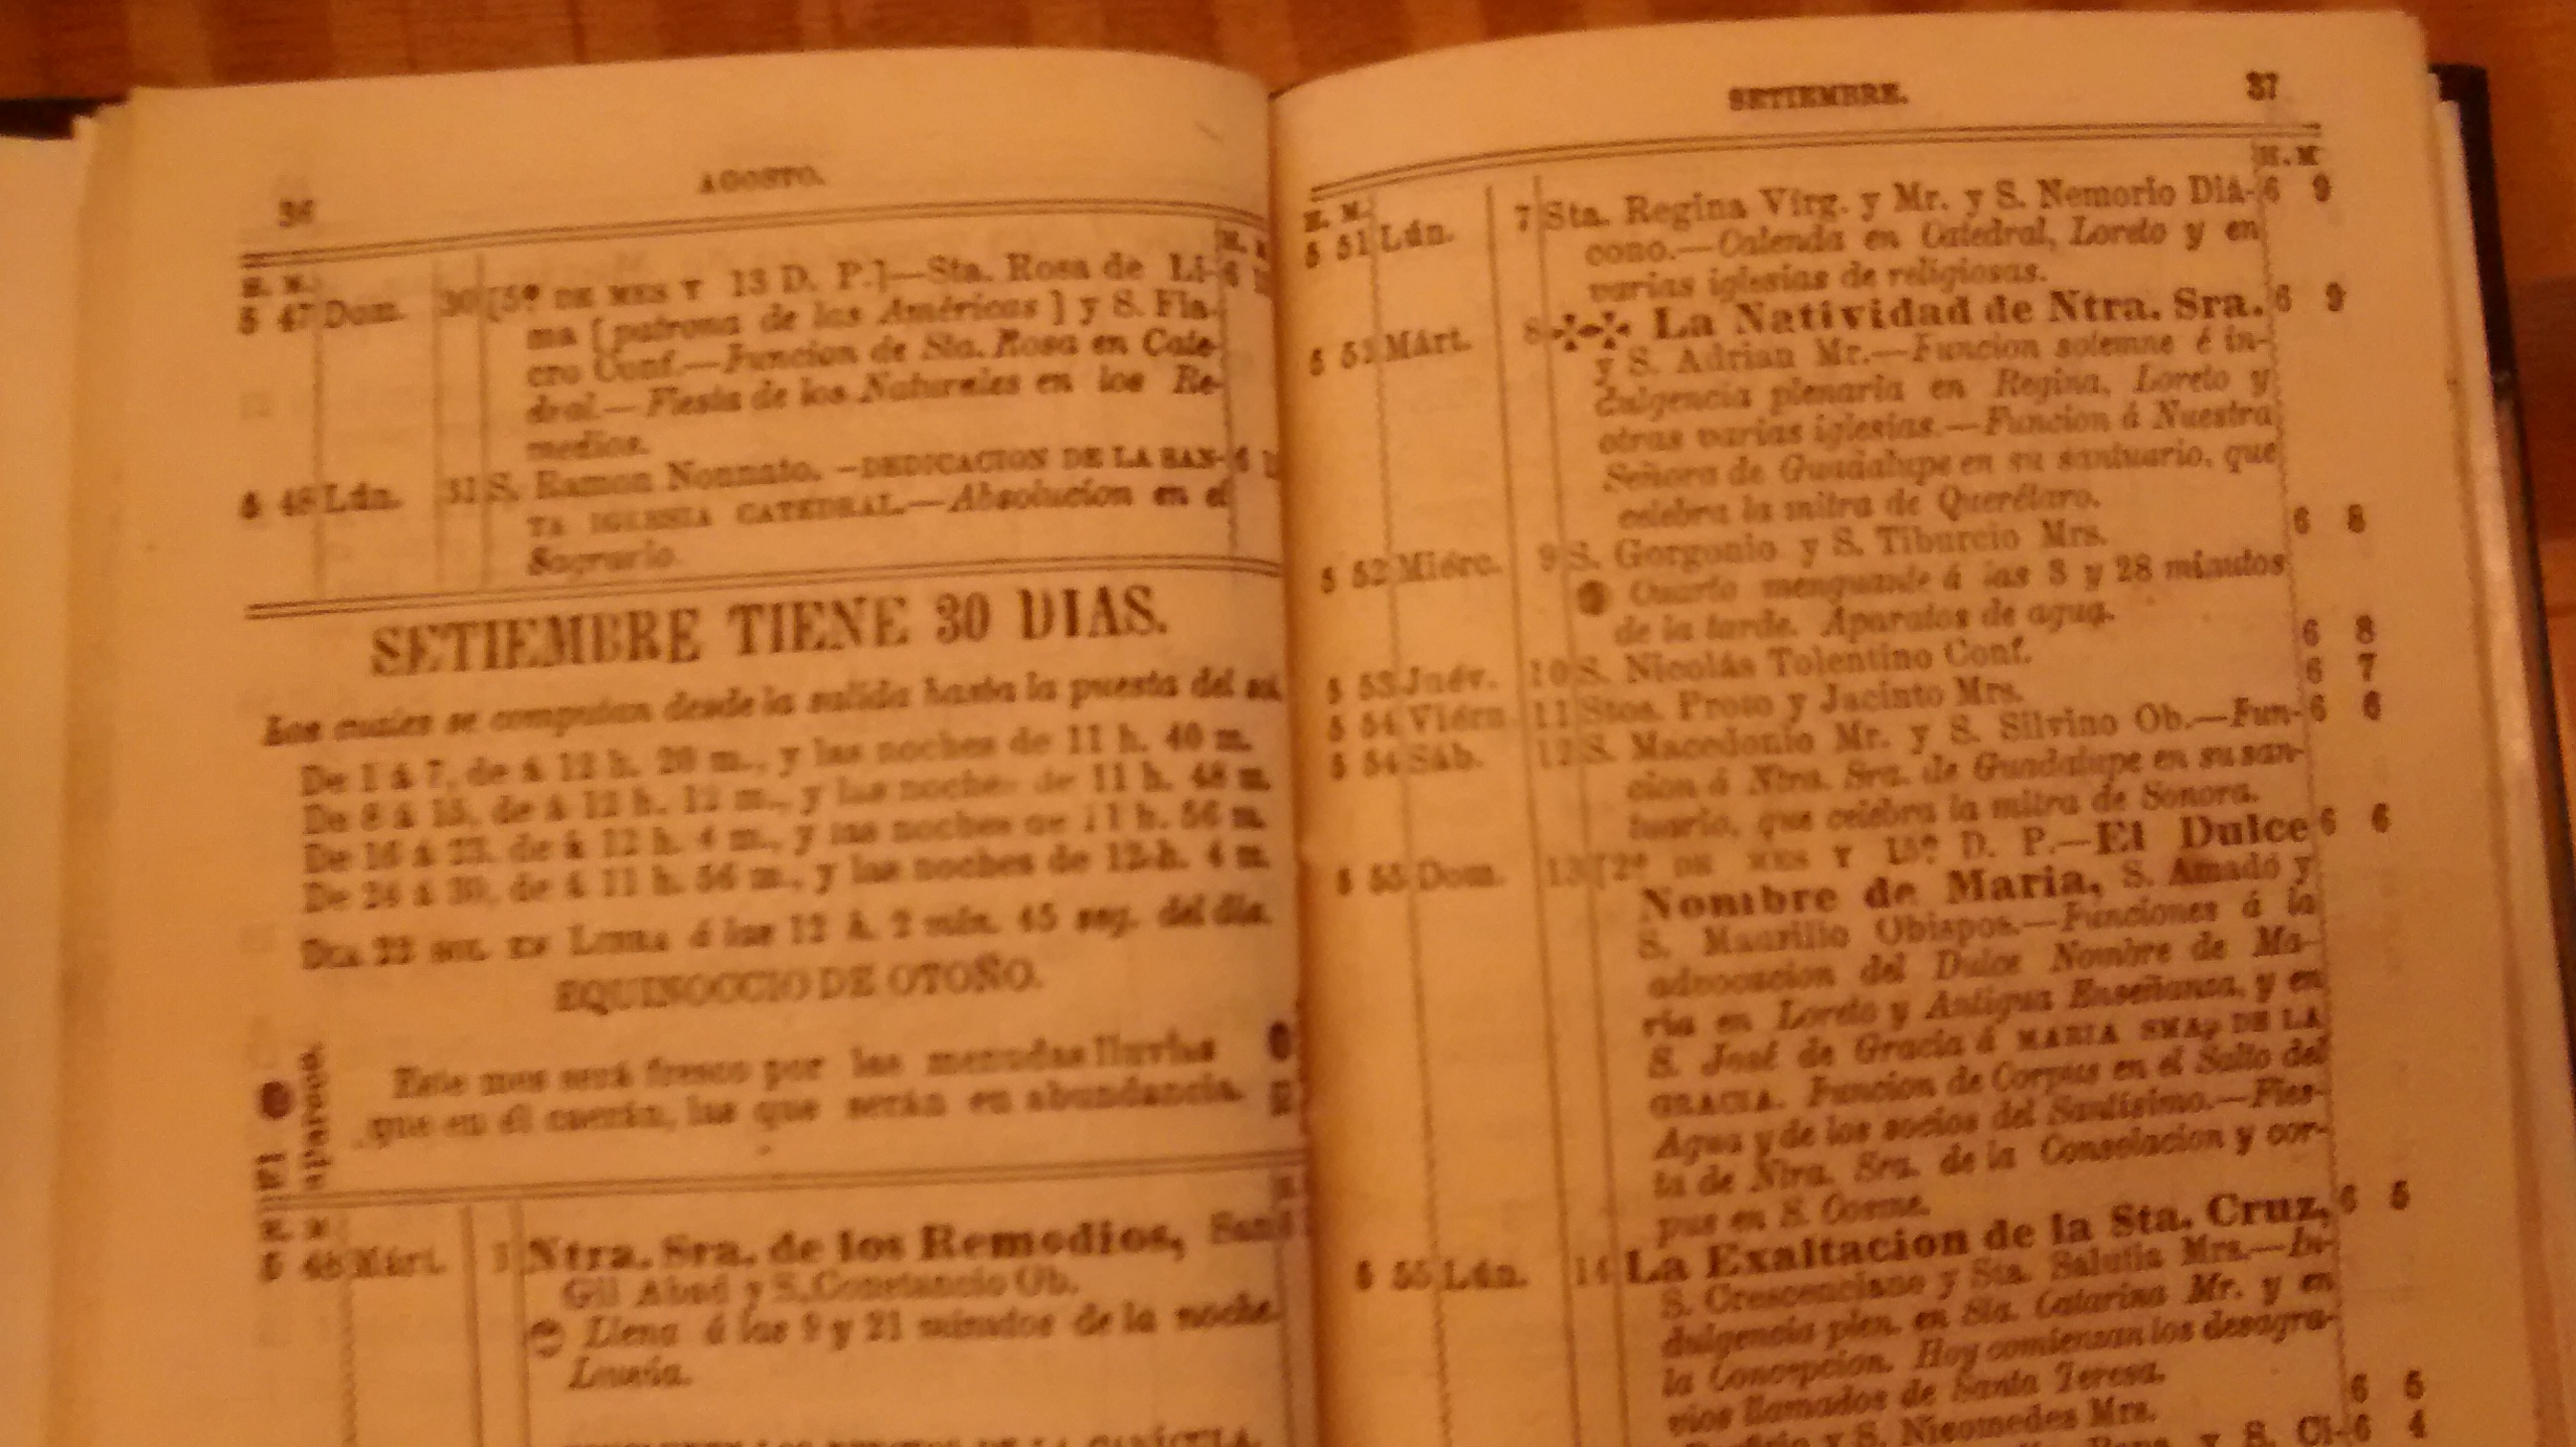 36
AGOSTO.
H. M.
5 47 Dom. 30 [5º DE MES Y 13 D. P.]—Sta. Rosa de Li- 6
ma [patrona de las Américas] y S. Fia-
cro Conf.—Funcion de Sta. Rosa en Cate-
dral.—Fiesta de los Naturales en los Re-
medios.
5 48 Lún. 31 S. Ramon Nonnato.—DEDICACION DE LA SAN- 6
TA IGLESIA CATEDRAL.—Absolucion en el
Sagrario.
SETIEMBRE TIENE 30 DIAS.
Los cuales se computan desde la salida hasta la puesta del sol.
De 1 á 7, de á 12 h. 20 m., y las noches de 11 h. 40 m.
De 8 á 15, de á 12 h. 12 m., y las noches de 11 h. 48 m.
De 16 á 23, de á 12 h. 4 m., y las noches de 11 h. 56 m.
De 24 á 30, de á 11 h. 56 m., y las noches de 12 h. 4 m.
DIA 22 SOL EN LIBRA á las 12 h. 2 min. 45 seg. del dia.
EQUINOCCIO DE OTOÑO.
Este mes será fresco por las menudas lluvias
que en él caerán, las que serán en abundancia.
El
aparece.
H. M.
5 48 Márt. 1 Ntra. Sra. de los Remedios, San
Gil Abad y S. Constancio Ob.
Llena á las 9 y 21 minutos de la noche.
Lluvia.
DE LA CANÍCULA.
SETIEMBRE.
37
H. M.
H. M
5 51 Lún. 7 Sta. Regina Vírg. y Mr. y S. Nemorio Diá- 6 9
cono.—Calenda en Catedral, Loreto y en
varias iglesias de religiosas.
5 51 Márt. 8 La Natividad de Ntra. Sra. 6 9
y S. Adrian Mr.—Funcion solemne é in-
dulgencia plenaria en Regina, Loreto y
otras varias iglesias.—Funcion á Nuestra
Señora de Guadalupe en su santuario, que
celebra la mitra de Querétaro.
5 52 Miérc. 9 S. Gorgonio y S. Tiburcio Mrs. 6 8
Cuarto menguante á las 3 y 28 minutos
de la tarde. Aparatos de agua.
5 53 Juév. 10 S. Nicolás Tolentino Conf. 6 8
5 54 Viérn. 11 Stos. Proto y Jacinto Mrs. 6 7
5 54 Sáb. 12 S. Macedonio Mr. y S. Silvino Ob.—Fun- 6 6
cion á Ntra. Sra. de Guadalupe en su san-
tuario, que celebra la mitra de Sonora.
5 55 Dom. 13 [2º DE MES Y 15º D. P.—El Dulce 6 6
Nombre de Maria, S. Amado y
S. Maurilio Obispos.—Funciones á la
advocacion del Dulce Nombre de Ma-
ría en Loreto y Antigua Enseñanza, y en
S. José de Gracia á MARIA SMA. DE LA
GRACIA. Funcion de Corpus en el Salto del
Agua y de los socios del Santísimo.—Fies-
ta de Ntra. Sra. de la Consolacion y cor-
pus en S. Cosme.
5 55 Lún. 14 La Exaltacion de la Sta. Cruz, 6 5
S. Crescenciano y Sta. Salutia Mrs.—In-
dulgencia plen. en Sta. Catarina Mr. y en
la Concepcion. Hoy comienzan los desagra-
vios llamados de Santa Teresa.
y S. Nicomedes Mrs. 6 5
y S. Ci- 6 4